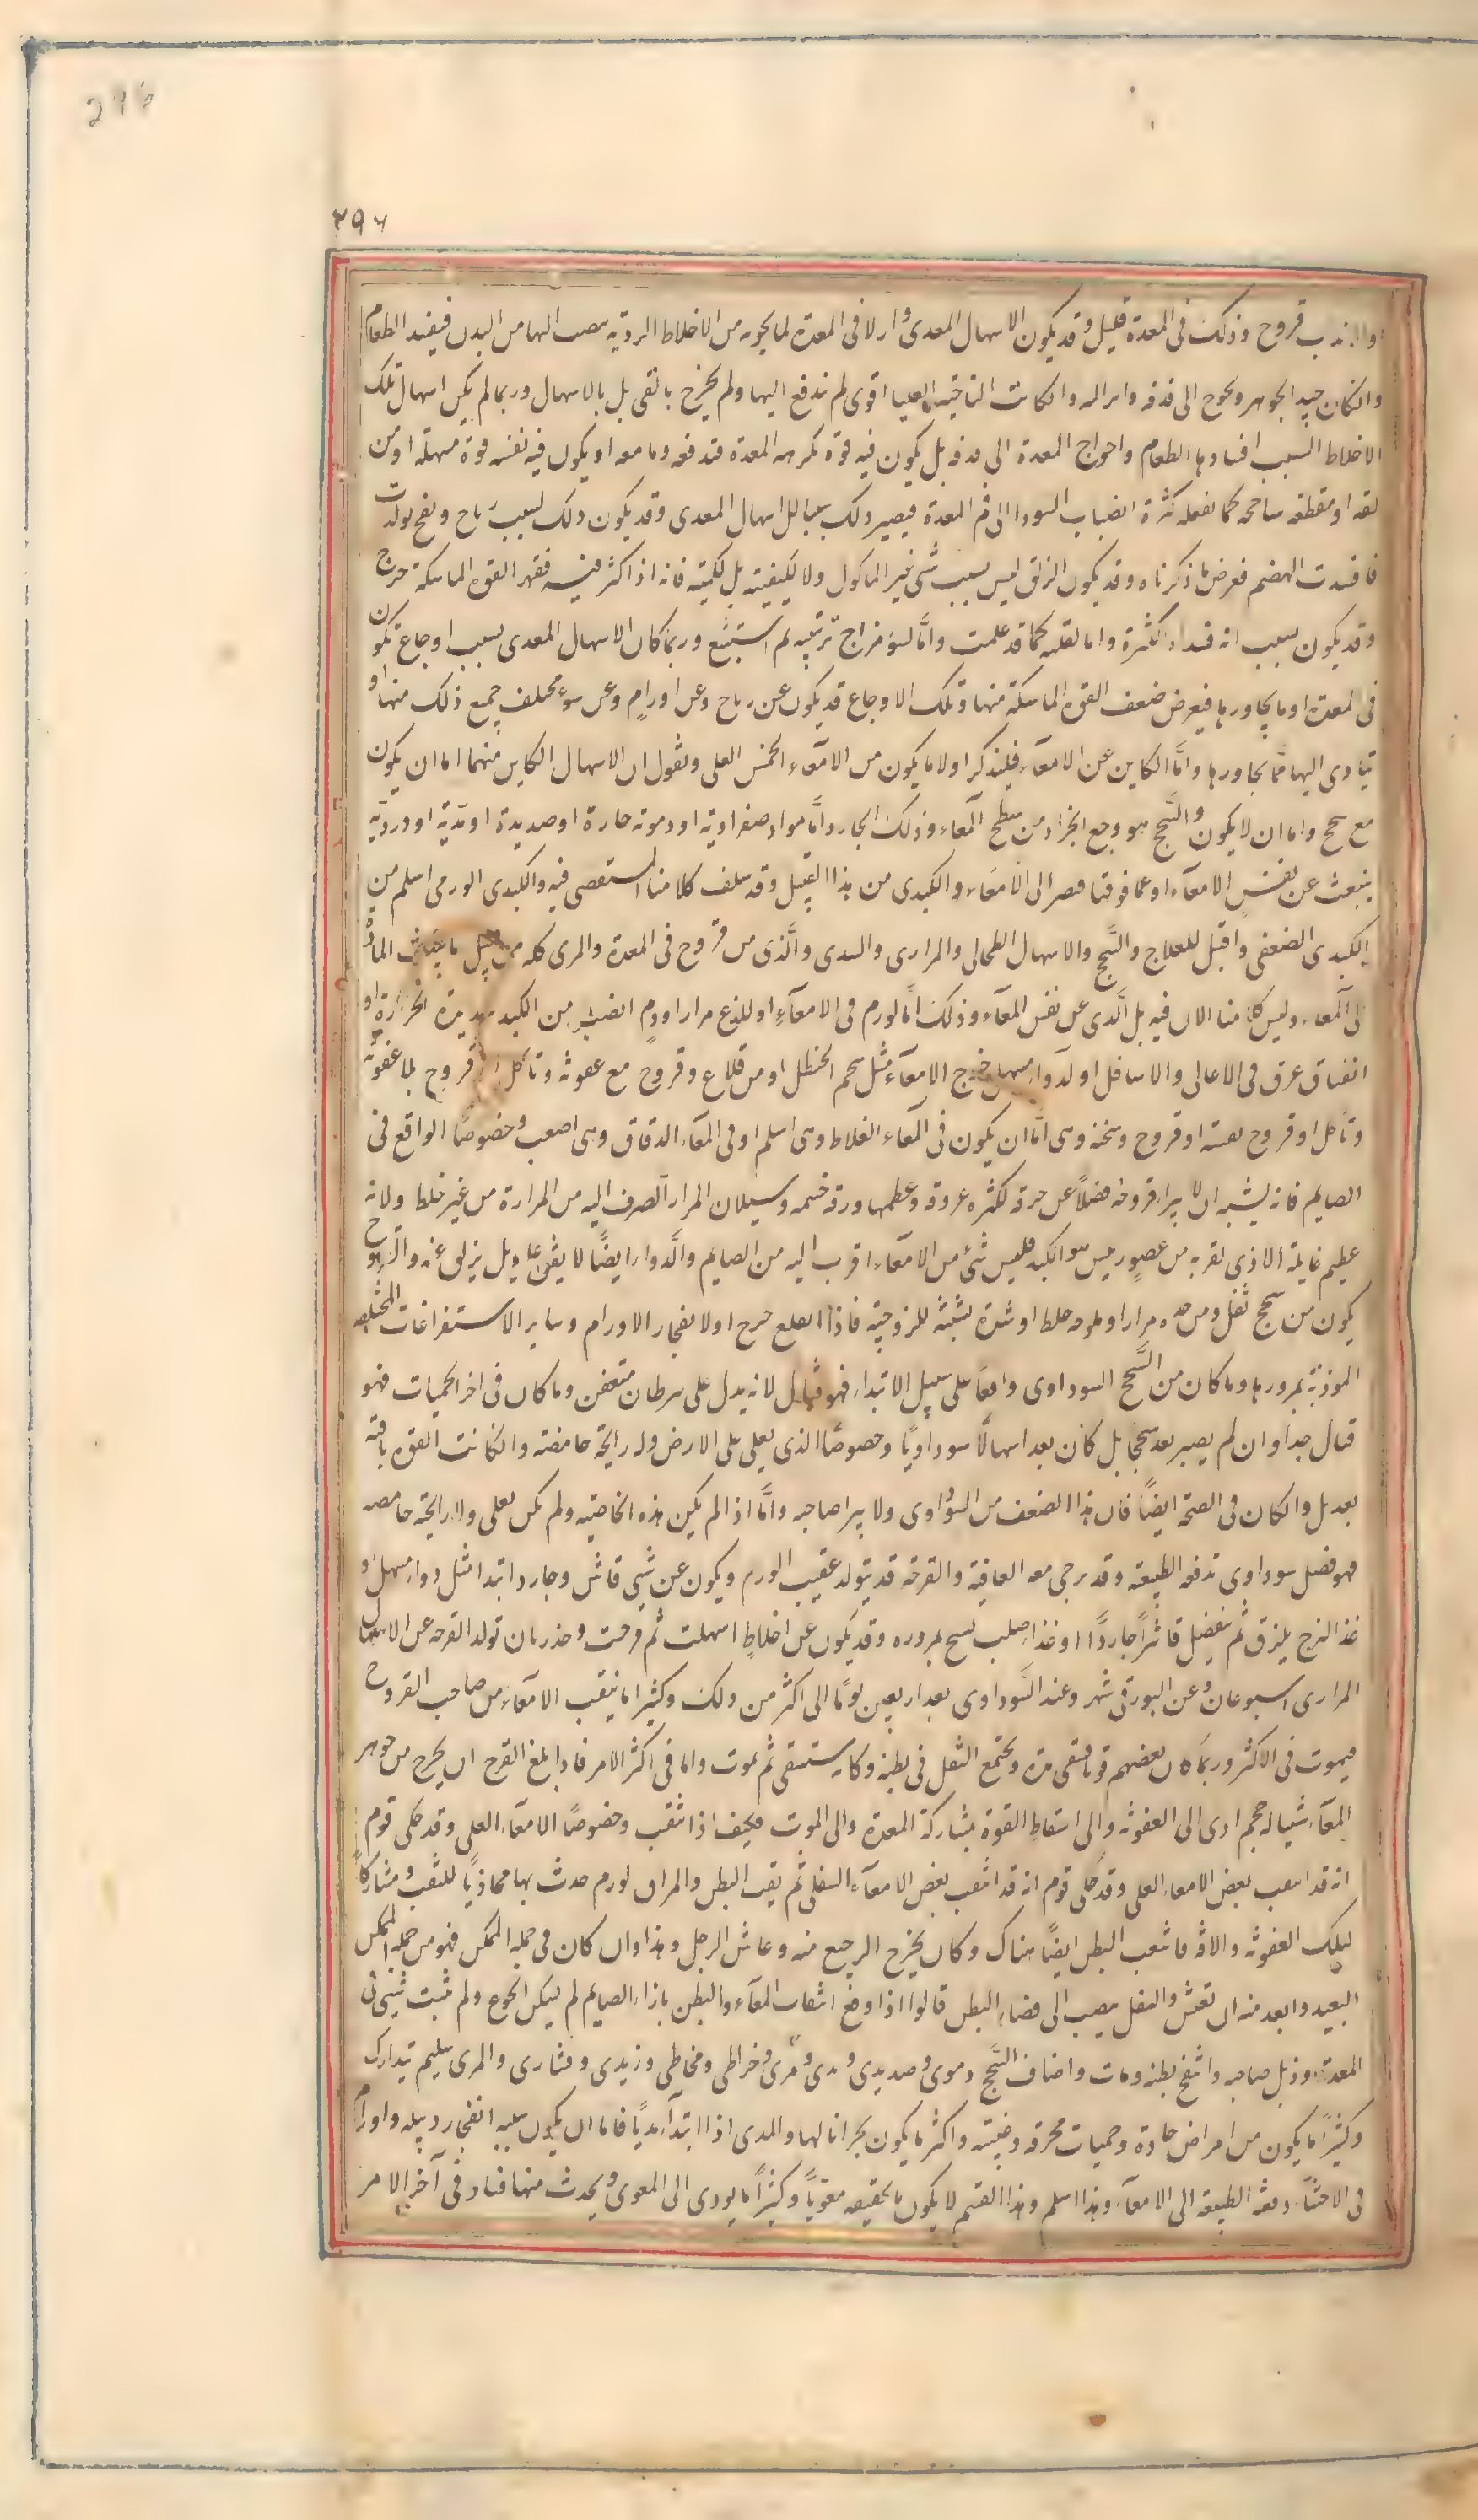 296
۲۹۶
قروح وذلك فى المعدة قليل وقد يكون الاسهال المعدى لا فى المعدة لما يحويه من الاخلاط الردية من البدن فيفسد الطعام
وان كان جيد الجوهر ويحوج الى قذفه وانزاله وان كانت الناحية العليا اقوى لم تدفع اليها ولم يخرج بالقى بل بالاسهال وربما لم يكن اسهال تلك
الاخلاط السبب افسادها الطعام واحواج المعدة الى بل يكون فيه قوة المعدة فتدفعه وما معه او يكون فيه نفسه قوة مسهلة او من
او مقطعة كما يفعله كثرة انصباب السودا الى فم المعدة فيصير ذلك سببا للاسهال المعدى وقد يكون ذلك لسبب رياح ونفخ تولدت
فافسدت الهضم فعرض ما ذكرناه وقد يكون الزلق ليس بسبب شى غير الماكول ولا لكيفيته بل لكميته فانه اذا كثر فيه فقهر القوة الماسكة خرج
وقد يكون بسبب انه فسد اما لكثرة واما لقلة كما قد علمت واما لسؤ مزاج ترتيبه وربما كان الاسهال المعدى بسبب اوجاع تكون
فى المعدة او ما يجاورها فيعرض ضعف القوة الماسكة منها وتلك الاوجاع قد يكون عن رياح وعن اورام وعن سوء مختلف جميع ذلك منها او
يتادى اليها مما يجاورها واما الكاين عن الامعآء فلنذكر اولا ما يكون من الامعآء الخمس العلى ونقول ان الاسهال الكاين منهما اما ان يكون
مع سحج واما ان لا يكون والسحج هو وجع انجراد من سطح المعاء وذلك الجارد اما مواد صفراوية او دموية حارة او صديدة او مدية او دردية
ينبعث عن نفس الامعآء او عما فوقها الى الامعآء والكبدى من هذا القبيل وقد سلف كلامنا المستقصى فيه والكبدى الورمى اسلم من
الكبدى الضعفى واقبل للعلاج والسحج والاسهال الطحالى والمرارى والذى من قروح فى المعدة والمرى كله من قبيل ما الماد
الى المعاء وليس كلامنا الان فيه بل الذى عن نفس المعاء وذلك اما لورم فى الامعآء او للذع مرار او دم انصب من الكبد شديدة الحرارة او
انفتاق عرق فى الاعالى والاسافل او لدوآء مسهل جرح الامعآء مثل شحم الحنظل او من قلاع وقروح مع عفونة وتاكل او قروح بلا عفونة
وتاكل او قروح او قروح وسخة وهى اما ان يكون فى المعاء الغلاظ وهى اسلم او فى المعآء الدقاق وهى اصعب وخصوصا الواقع فى
الصايم فانه يشبه ان لا يبرا قروحه فضلا عن خرقه لكثرة عروقه وعظمها ورقة جسمه وسيلان المرار الصرف اليه من المرارة من غير خلط ولانه
عظيم غايلة الاذى لقربه من عضو رييس هو الكبد فليس شئ من الامعآء اقرب اليه من الصايم والدوا ايضا لا يقف عليه بل يزلق عنه والقروح
يكون من سحج ثفل ومن مرار او ملوحة خلط او شدة تشبثه للزوجته فاذا انقلع جرح او لانفجار الاورام وساير الاستفراغات المختلفة
الموذية بمرورها وما كان من السحج السوداوى واقعا على سبيل الابتداء فهو قتال لانه يدل على سرطان متعفن وما كان فى اخر الحميات فهو
قتال جدا وان لم يصير بعد سحجا بل كان بعد اسهالا سوداويا وخصوصا الذى يغلى على الارض وله رايحة حامضة وان كانت القوة باقية
بعد بل وان كان فى الصحة ايضا فان هذا الصنف من السوداوى ولا يبرا صاحبه واما اذا لم يكن هذه الخاصية ولم يكن يغلى ولا رايحة حامضة
فهو فضل سوداوى تدفعه الطبيعة وقد يرجى معه العافية والقرحة قد يتولد عقيب الورم ويكون عن شى قاشر وجارد ابتدا مثل دواء مسهل او
غذا لزج يلزق ثم ينفصل قاشرا جاردا او غذا صلب يسحج بمروره وقد يكون عن اخلاط اسهلت ثم قرحت وحذر زمان تولد القرحة عن الاسهال
المرارى اسبوعان وعن البورقى شهر وعند السوداوى بعد اربعين يوما الى اكثر من ذلك وكثيرا ما ينقب الامعآء من صاحب القروح
فيموت فى الاكثر وربما كان بعضهم قويا فبقى مدة ويجتمع الثفل فى بطنه وكانه مستسقى ثم يموت واما فى اكثر الامر فاذا بلغ القرح ان يخرج من جوهر
المعآء شيا له حجم ادى الى العفونة والى اسقاط القوة بمشاركة المعدة والى الموت فكيف اذا ثقب وخصوصا الامعآء العلى وقد حكى قوم
انه قد انثقب بعض الامعاء العلى وقد حكى قوم انه قد انثقب بعض الامعآء السفلى ثم ثقب البطن والمراق لورم حدث بها محاذيا للثقب ومشاركا
لتلك العفونة والافة فانثقب البطن ايضا هناك وكان يخرج الرجيع منه وعاش الرجل وهذا وان كان فى جملة الممكن فهو من جملة الممكن
البعيد وابعد منه ان تعيش والثفل ينصب الى فضاء البطن قالوا اذا وقع انثقاب المعآء والبطن بازاء الصايم لم يسكن الجوع ولم يثبت شى فى
المعدة وذبل صاحبه وانتفخ بطنه ومات واصناف السحج دموى وصديدى ومدى ومرى وخراطى ومخاطى وزبدى وقشارى والمرى سليم يتدارك
وكثيرا ما يكون من امراض حادة وحميات محرقة وخبيثة واكثر ما يكون بحرانا لها والمدى اذا ابتدآء مديا فاما ان يكون سببه انفجار دبيلة واورام
فى الاحشآء دفعته الطبيعة الى الامعآء وهذا اسلم وهذا القسم لا يكون بالحقيقة معويا وكثيرا ما يودى الى المعوى ويحدث منها فساد فى آخر الامر